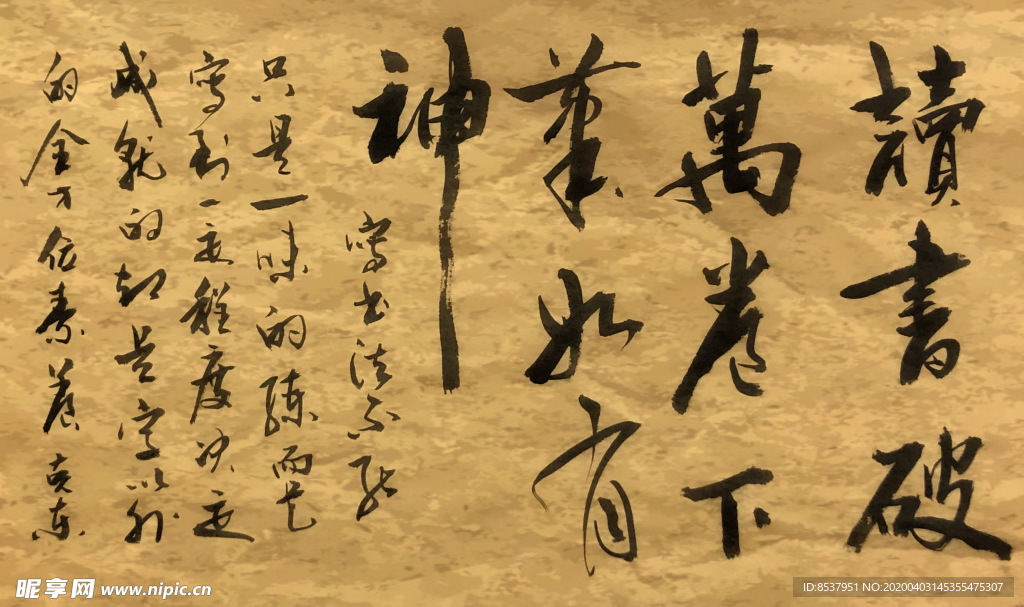 讀書破
萬卷下
筆如有
神
寫书法不能
只是一味的练而已
寫到一定程度决定
成就的却是字以外
的全方位素养 克东
昵享网 www.nipic.cn
ID:8537951 NO:20200403145355475307